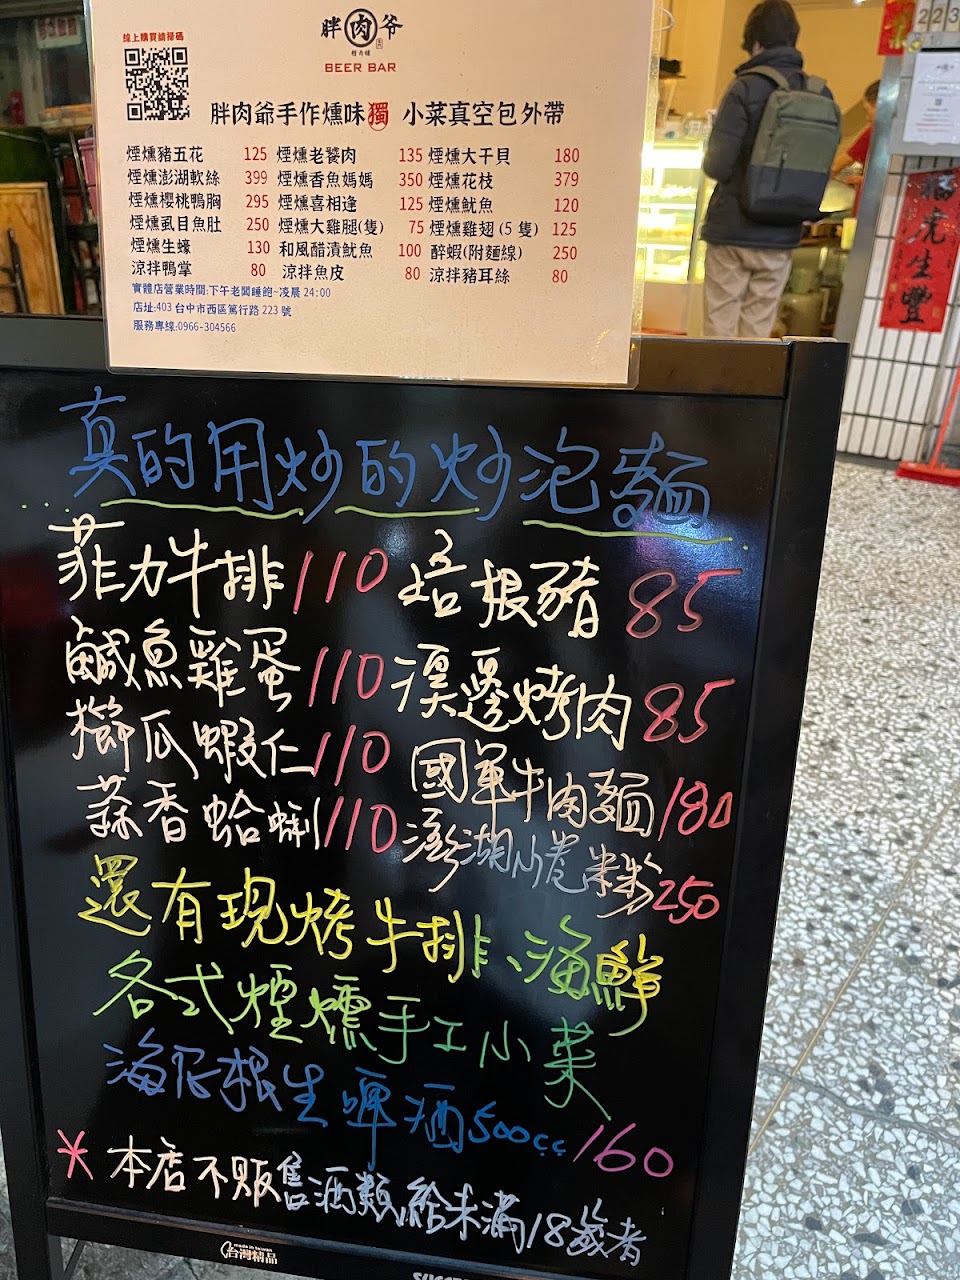 線上購買請掃碼
胖肉爺
BEER BAR
胖肉爺手作燻味獨 小菜真空包外帶
煙燻豬五花 125 煙燻老饕肉 135 煙燻大干貝 180
煙燻澎湖軟絲 399 煙燻香魚媽媽 350 煙燻花枝 379
煙燻櫻桃鴨胸 295 煙燻喜相逢 125 煙燻魷魚 120
煙燻虱目魚肚 250 煙燻大雞腿(隻) 75 煙燻雞翅(5隻) 125
煙燻生蠔 130 和風醋漬魷魚 100 醉蝦(附麵線) 250
涼拌鴨掌 80 涼拌魚皮 80 涼拌豬耳絲 80
實體店營業時間:下午老闆睡飽~凌晨24:00
店址:403台中市西區篤行路223號
服務專線:0966-304566
223
福虎生豐
真的用炒的炒泡麵
菲力牛排110 培根豬 85
鹹魚雞蛋110 漠邊烤肉 85
櫛瓜蝦仁110 國軍牛肉麵180
蒜香蛤蜊110 澎湖小卷米粉250
還有現烤牛排、海鮮
各式煙燻手工小菜
海尼根生啤酒500cc 160
*本店不販售酒類給未滿18歲者
made in taiwan
台灣精品